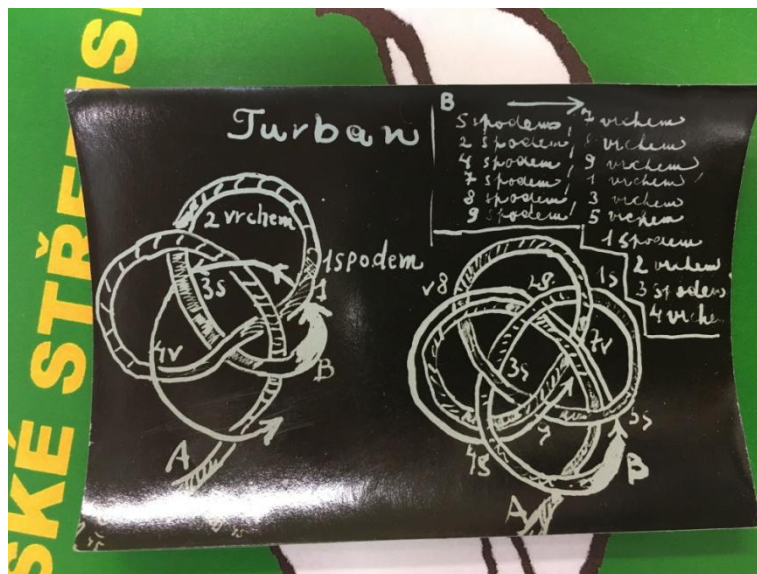 SKÉ STŘEDISK
Turban
B
5 spodem, 7 vrchem
2 spodem, 8 vrchem
4 spodem, 9 vrchem
7 spodem, 1 vrchem
8 spodem, 3 vrchem
9 spodem, 5 vrchem
1 spodem
2 vrchem
3 spodem
4 vrchem
2 vrchem
1 spodem
3s
1
4v
B
A
v8
2s
1s
7v
3s
5s
4s
9
B
A